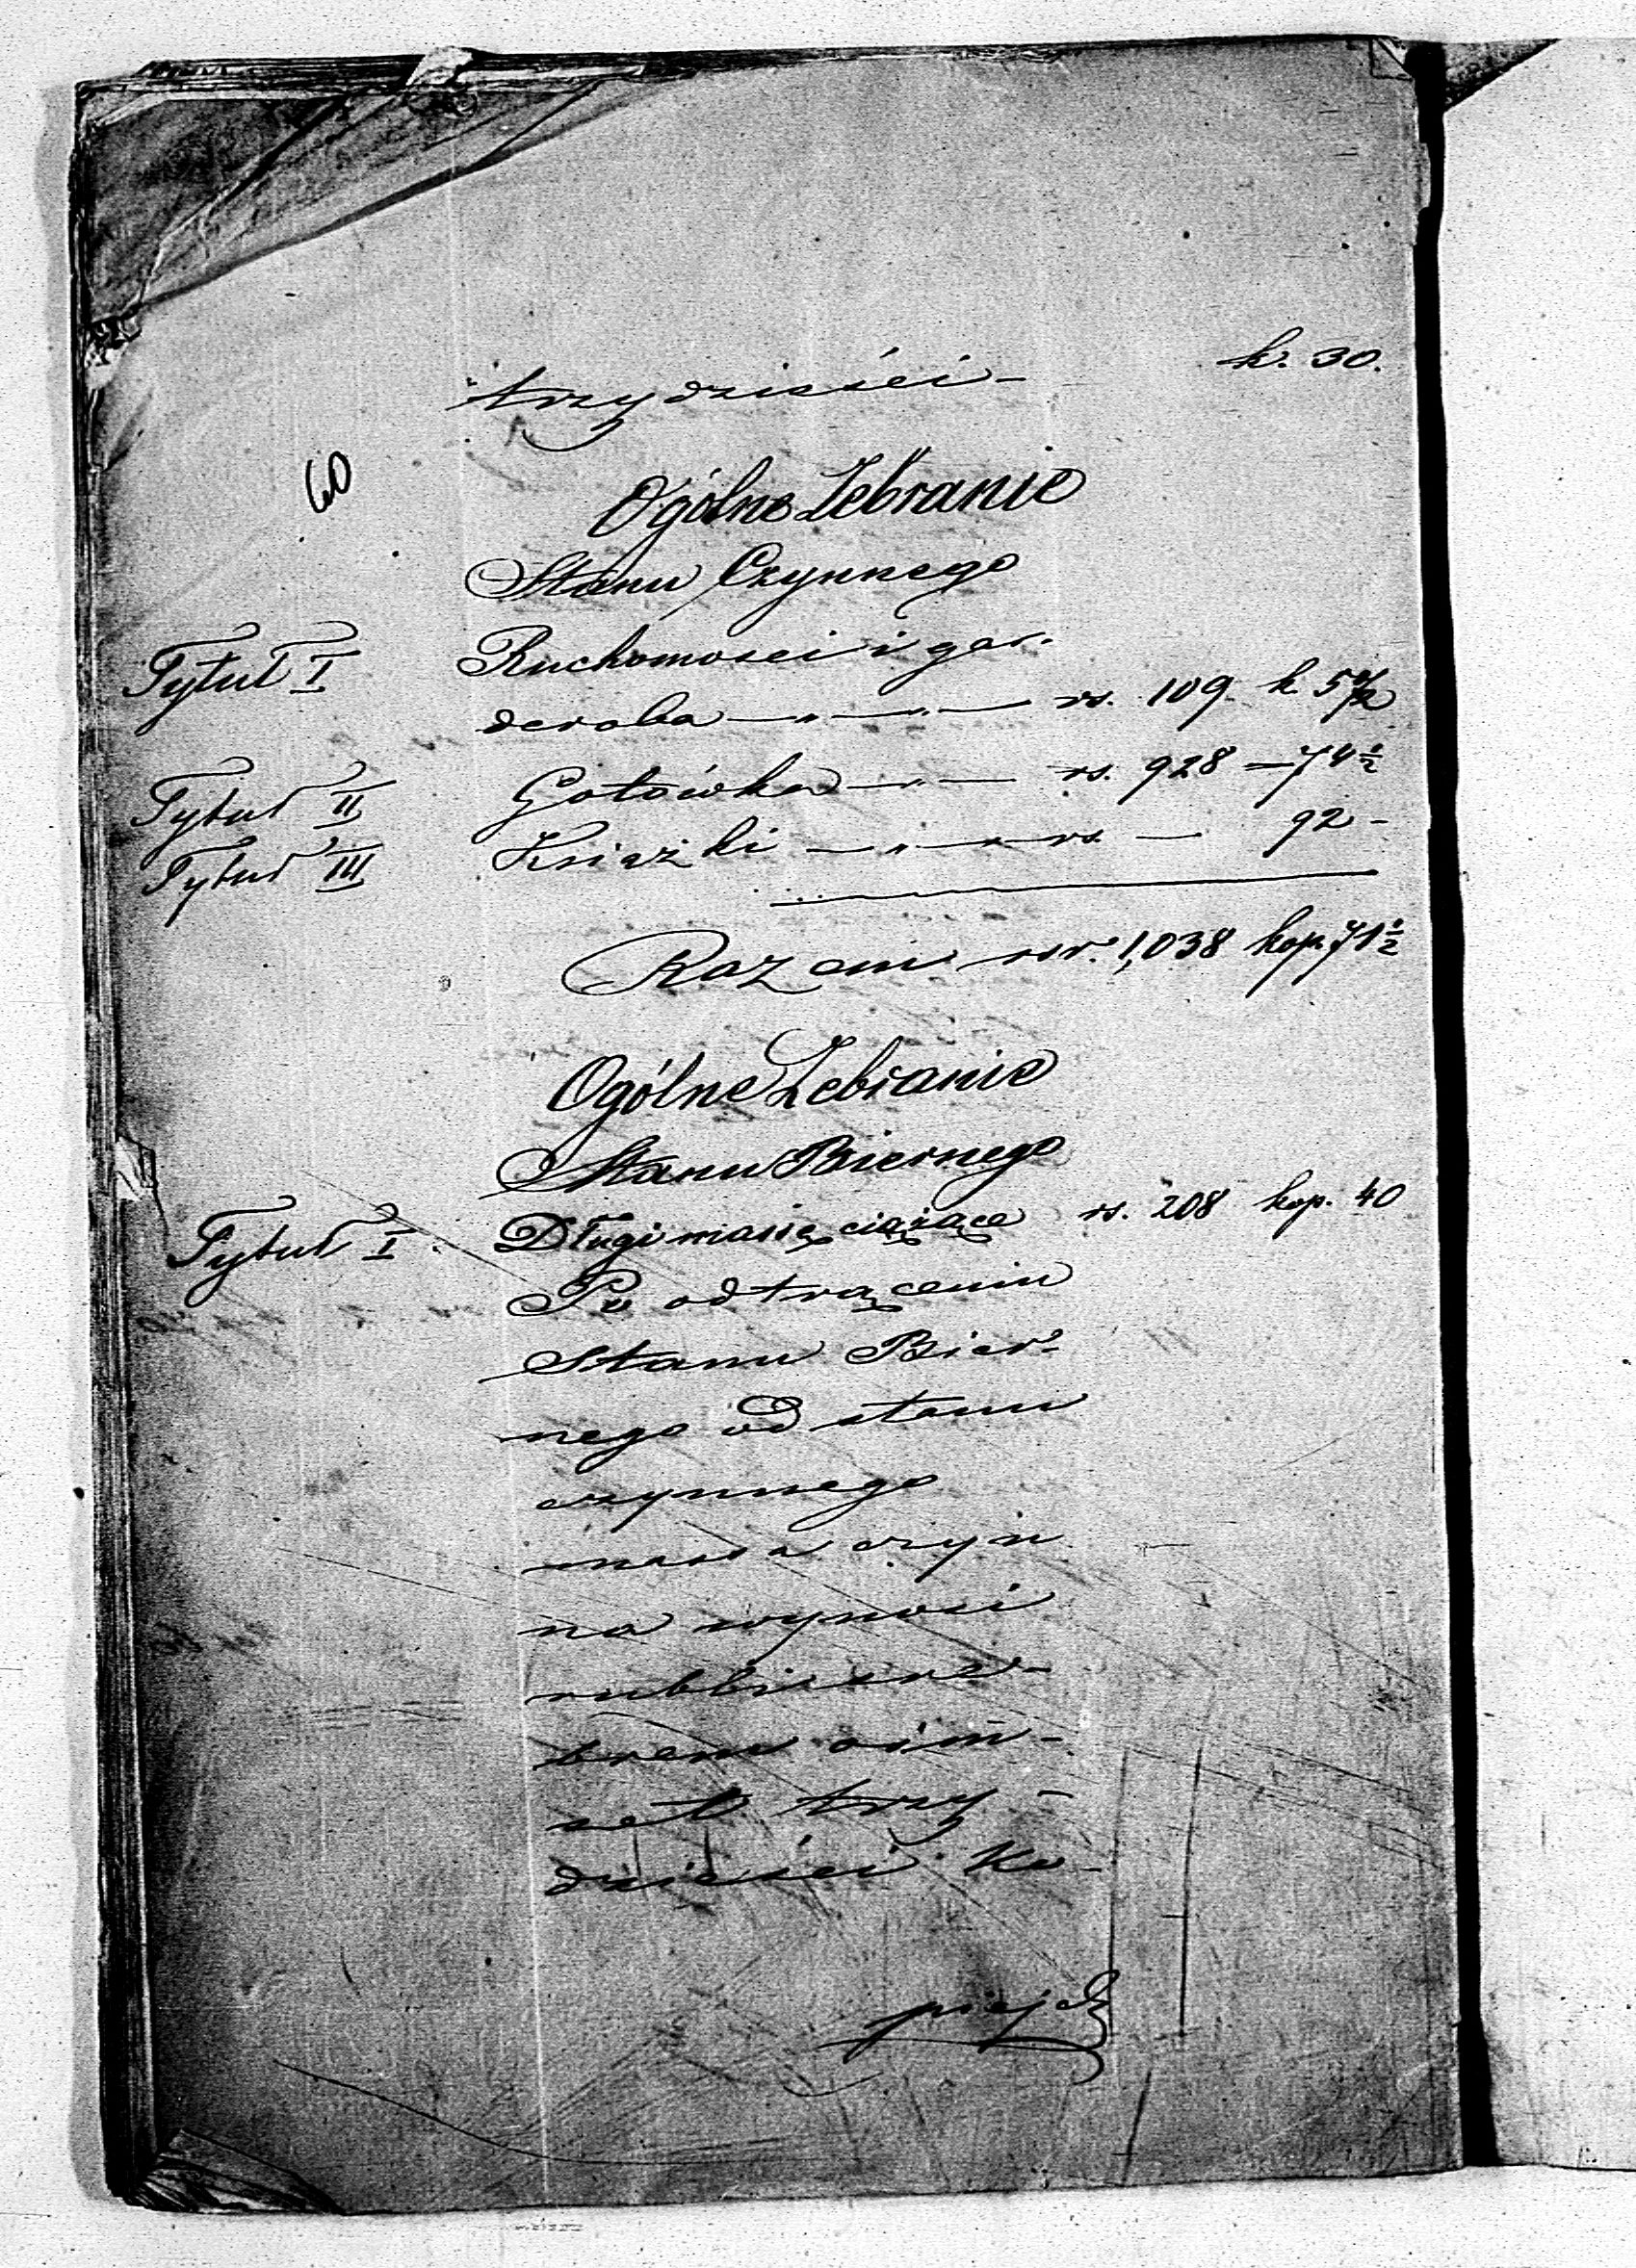 trzydzieści – k. 30.
60
Ogólne Zebranie
Stanu Czynnego
Tytuł I Ruchomości i gar-
deroba — „ — „ — rs. 109 k.
Tytuł II Gotówka — „ — rs. 928 — 74 ½
Tytuł III Książki — „ — „ — rs — 92 -
Razem rsr. 1,038 kop 71 ½
Ogólne Zebranie
Stanu Biernego
Tytuł I Długi massę ciążące rs. 208 kop. 40
Po odtrąceniu
Stanu Bier-
nego od stanu
czynnego
massa czyn
na wynosi
rubli sre-
brem ośm-
set trzy-
dzieści ko-
piejek